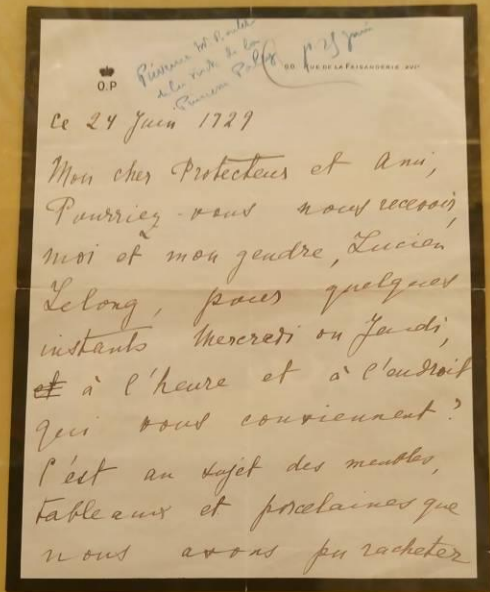 Prévenir Mr
de la visite de la
Princesse Paley
p. 25 juin
O.P
RUE DE LA FAISANDERIE. XVIᵉ
Ce 24 Juin 1929
Mon cher Protecteur et Ami,
Pourriez-vous nous recevoir,
moi et mon gendre, Lucien
Lelong, pour quelques
instants Mercredi ou Jeudi,
et à l'heure et à l'endroit
qui vous conviennent?
C'est au sujet des meubles,
tableaux et porcelaines que
nous avons pu racheter